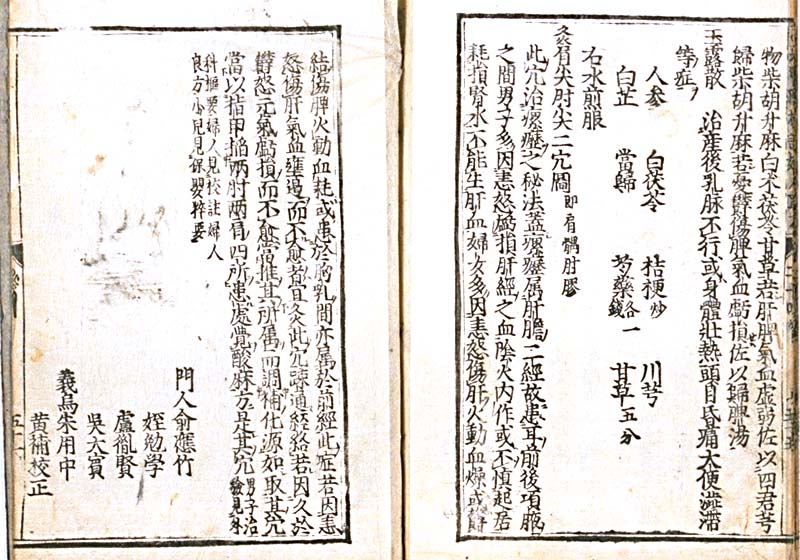 物柴胡升麻白朮茯苓甘草若肝脾氣血虛弱佐以四君芎
歸柴胡升麻若憂鬱傷脾氣血虧損佐以歸脾湯
玉露散　治産後乳脉不行或身體壯熱頭目昏痛大便澁滯
等症
人参　白茯苓　桔梗炒　川芎
白芷　當歸　芍藥各一錢　甘草五分
右水煎服
灸肩尖肘尖二穴圖　即肩髃肘膠
此穴治瘰癧之秘法蓋瘰癧属肝膽二經故患耳前後項腋
之間男子多因恚怒虧損肝經之血隂火内作或不慎起居
耗損腎水不能生肝血婦女多因恚怒傷肝火動血燥或鬱
結傷脾火動血耗或患於胸乳間亦属於前經此症若因恚
怒傷肝氣血壅遏而不愈者宜灸此穴疎通經絡若因久於
鬱怒元氣虧損而不愈當推其所属而調補化源如取其穴
當以指甲掐兩肘兩肩四所患處覺酸麻方是其穴男子治驗見外
科樞要婦人見校註婦人
良方小兒見保嬰粹要
門人俞應竹
姪勉學
盧胤賢
吳大賔
義烏朱用中
黄補校正